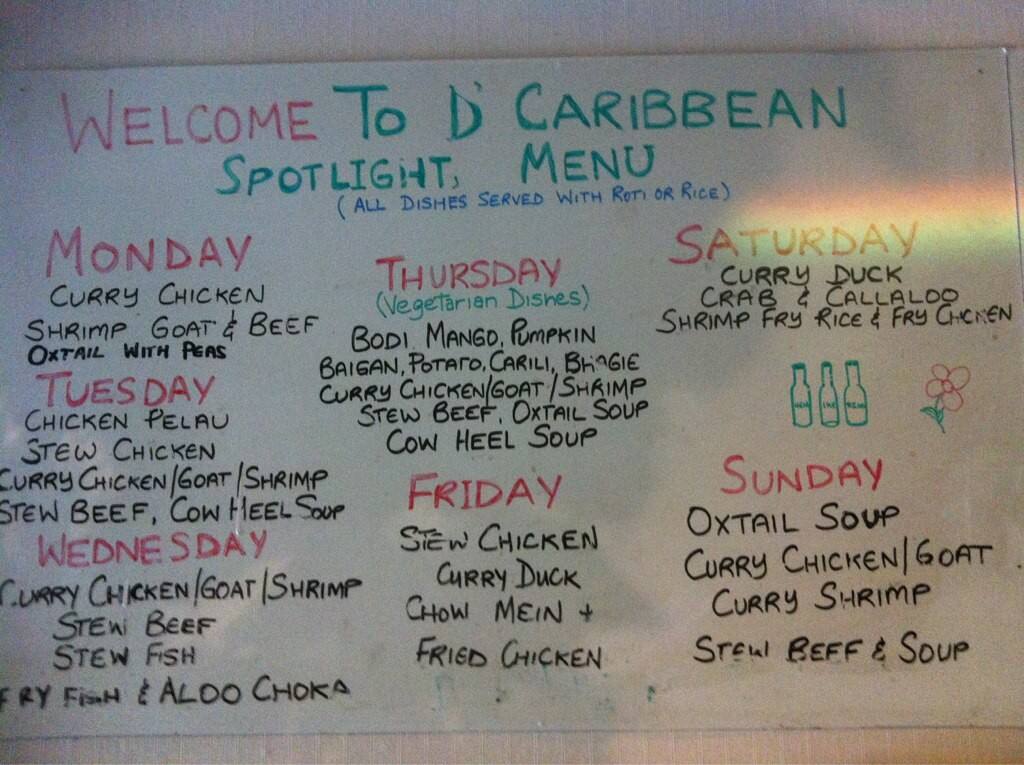 WELCOME TO D' CARIBBEAN
SPOTLIGHT, MENU
(ALL DISHES SERVED WITH ROTI OR RICE)
MONDAY
CURRY CHICKEN
SHRIMP GOAT & BEEF
OXTAIL WITH PEAS
TUESDAY
CHICKEN PELAU
STEW CHICKEN
CURRY CHICKEN/GOAT/SHRIMP
STEW BEEF, COW HEEL SOUP
WEDNESDAY
CURRY CHICKEN/GOAT/SHRIMP
STEW BEEF
STEW FISH
FRY FISH & ALOO CHOKA
THURSDAY
(Vegetarian Dishes)
BODI MANGO, PUMPKIN
BAIGAN, POTATO, CARILI, BHAGIE
CURRY CHICKEN/GOAT/SHRIMP
STEW BEEF, OXTAIL SOUP
COW HEEL SOUP
FRIDAY
STEW CHICKEN
CURRY DUCK
CHOW MEIN +
FRIED CHICKEN
SATURDAY
CURRY DUCK
CRAB & CALLALOO
SHRIMP FRY RICE & FRY CHICKEN
SUNDAY
OXTAIL SOUP
CURRY CHICKEN/GOAT
CURRY SHRIMP
STEW BEFF & SOUP